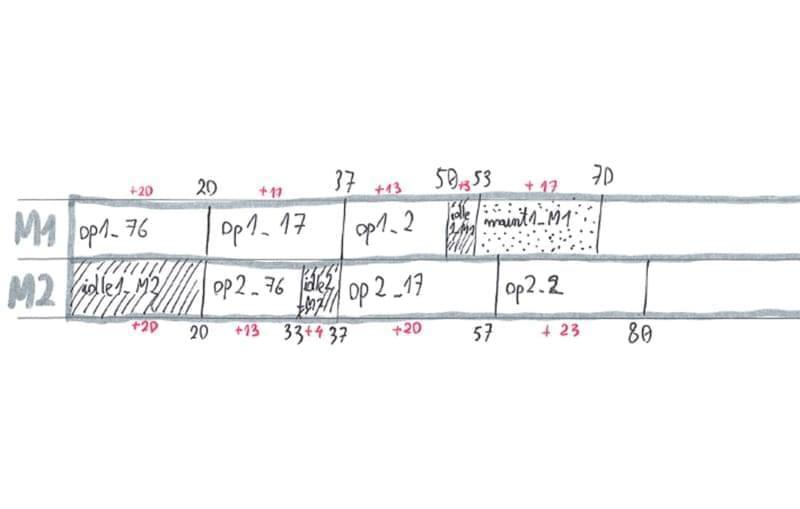 +20 20 +17 37 +13 50 +3 53 +17 70
M1 op1_76 op1_17 op1_2 idle 1_M1 maint1_M1
M2 idle1_M2 op2_76 idle2 _M2 op2_17 op2_2
+20 20 +13 33 +4 37 +20 57 +23 80